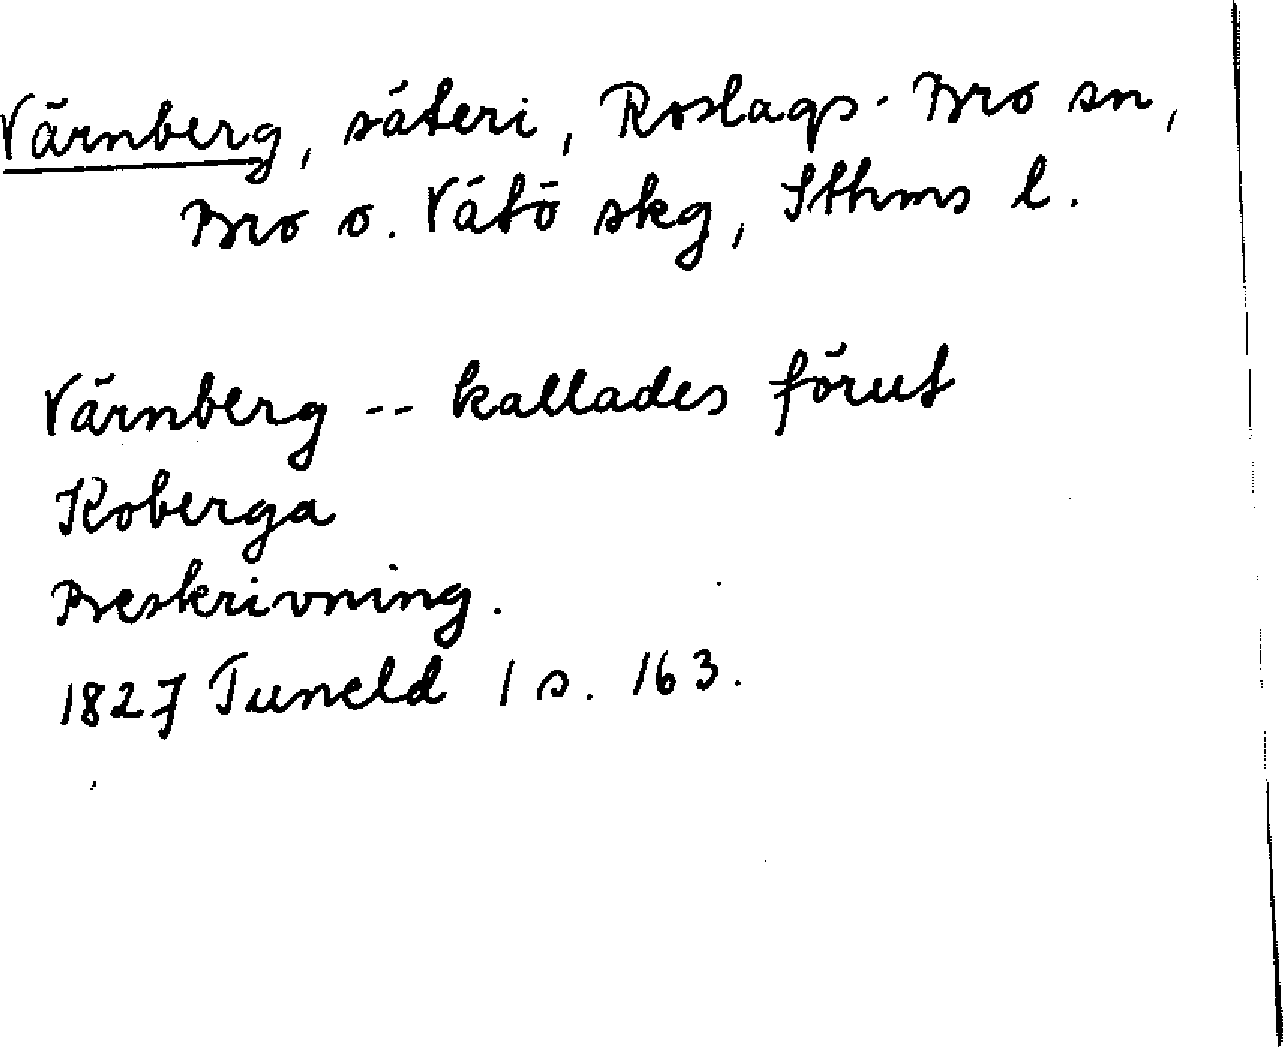 Värnberg, säteri, Roslags-Bro sn,
Bro o. Vätö skg, Sthms l.
Värnberg -- kallades förut
Koberga
Beskrivning.
1827 Tuneld I s. 163.